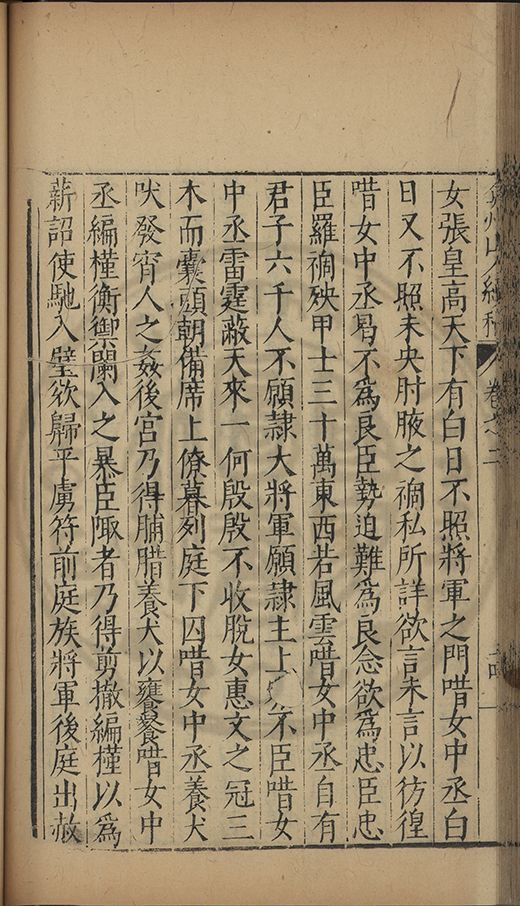 卷之二
女張皇高天下有白日不照將軍之門唶女中丞白
日又不照未央肘腋之禍私所詳欲言未言以彷徨
唶女中丞曷不爲良臣勢迫難爲良念欲爲忠臣忠
臣羅禍殃甲士三十萬東西若風雲唶女中丞自有
君子六千人不願隷大將軍願隷主上不臣唶女
中丞雷霆蔽天來一何殷殷不收脫女惠文之冠三
木而囊頭朝備席上僚暮列庭下囚唶女中丞養犬
吠發宵人之姦後宮乃得脯腊養犬以饔餐唶女中
丞編槿衛禦闌入之暴臣陬者乃得剪撤編槿以爲
薪詔使馳入壁欲歸平虜符前庭族將軍後庭出赦